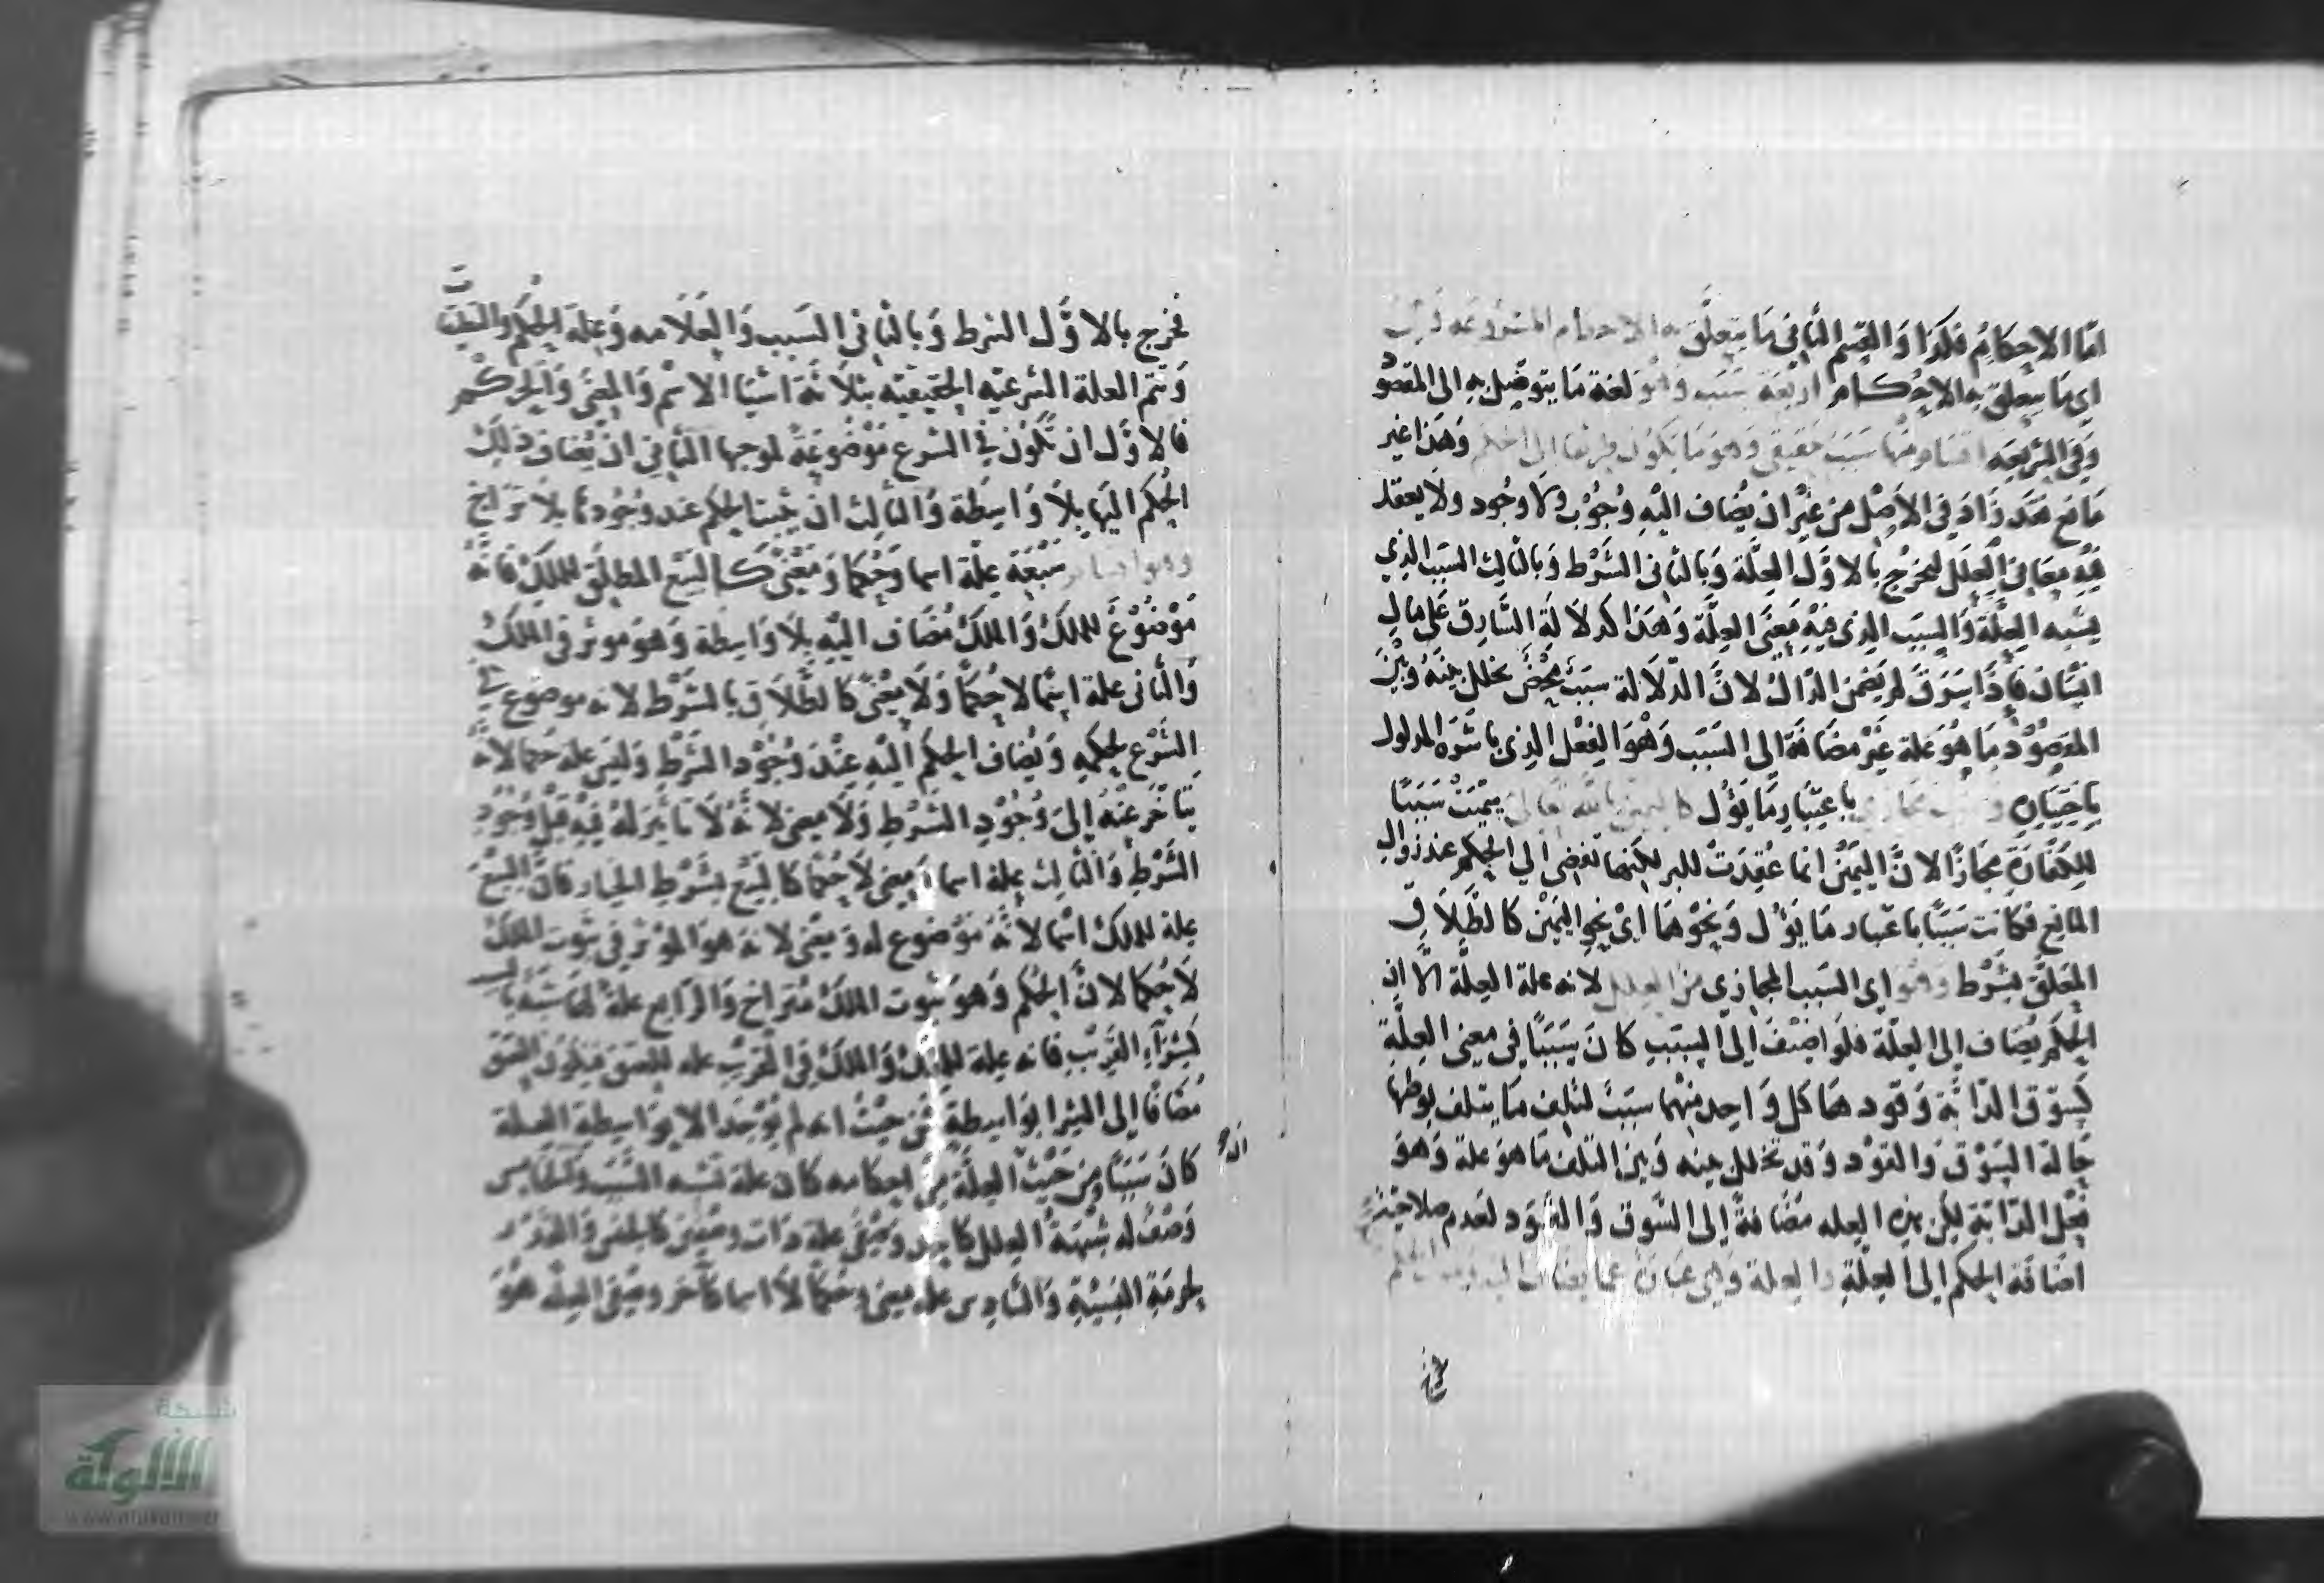 اما الاحكام فكذا والقسم الثاني ما يتعلق به الاحكام المشروعة
اي ما يتعلق به الاحكام اربعة سبب وهو لغة ما يتوصل به الى المقصود
وفي الشريعة اقسام منها سبب حقيقي وهو ما يكون طريقا الى الحكم وهذا غير
مانع زاد في الاصل من غير ان يضاف اليه وجوب ولا وجود ولا يعقل
فيه معاني العلل ليخرج بالاول العلة وبالثاني الشرط وبالثالث السبب الذي
يشبه العلة والسبب الذي فيه معنى العلة وهذا كدلالة السارق على مال
انسان فاذا سرق لم يضمن الدال لان الدلالة سبب محض تخلل بينه وبين
المقصود ما هو علة غير مضافة الى السبب وهو الفعل الذي باشره المدلول
باختياره وسبب مجازي باعتبار ما يؤل كاليمين بالله تعالى سميت سببا
للكفارة مجازا لان اليمين انما عقدت للبر لكنها تفضي الى الحكم عند زوال
المانع فكانت سببا باعتبار ما يؤل ونحوهما اي نحو اليمين كالطلاق
المعلق بشرط وهو اي السبب المجازي من العلل لانه علة العلة الا ان
الحكم يضاف الى العلة فلو اضيف الى السبب كان سببا في معنى العلة
كسوق الدابة وقودها كل واحد منهما سبب لتلف ما يتلف بوطئها
حالة السوق والقود وقد تخلل بينه وبين التلف ما هو علة وهو
فعل الدابة لكن هذه العلة مضافة الى السوق والقود لعدم صلاحية
اضافة الحكم الى العلة والعلة وهي عبارة عما يضاف اليه وجوب الحكم
فخرج بالاول الشرط وبالثاني السبب والعلامة وعلة الحكم والتعليقات
وتتم العلة الشرعية الحقيقية بثلاثة اشيا الاسم والمعنى والحكم
فالاول ان تكون في الشرع موضوعة لموجبها الثاني ان يضاف ذلك
الحكم اليها بلا واسطة والثالث ان يثبت الحكم عند وجودها بلا تراخ
سبعة علة اسما وحكما ومعنى كالبيع المطلق للملك فانه
موضوع للملك والملك مضاف اليه بلا واسطة وهو موثر في الملك
والثاني علة اسما لا حكما ولا معنى كالطلاق بالشرط لانه موضوع في
الشرع لحكمه ويضاف الحكم اليه عند وجود الشرط وليس علة حكما لانه
يتاخر عنه الى وجود الشرط ولا معنى لانه لا تاثير له فيه قبل وجود
الشرط والثالث علة اسما ومعنى لا حكما كالبيع بشرط الخيار فان البيع
علة للملك اسما لانه موضوع له ومعنى لانه هو الموثر في ثبوت الملك
لا حكما لان الحكم وهو ثبوت الملك متراخ والرابع علة لها شبه بالسبب
كشراء القريب فانه علة للملك والملك في القريب علة للعتق فيكون العتق
مضافا الى الشرا بواسطة فمن حيث انه لم يوجد الا بواسطة العلة
كان سببا ومن حيث ان العلة من احكامه كان علة تشبه السبب والخامس
وصف له شبهة العلل كاحد وصفي علة ذات وصفين كالجنس والقدر
لحرمة النسيئة والسادس علة معنى وحكما لا اسما كآخر وصفي العلة هو